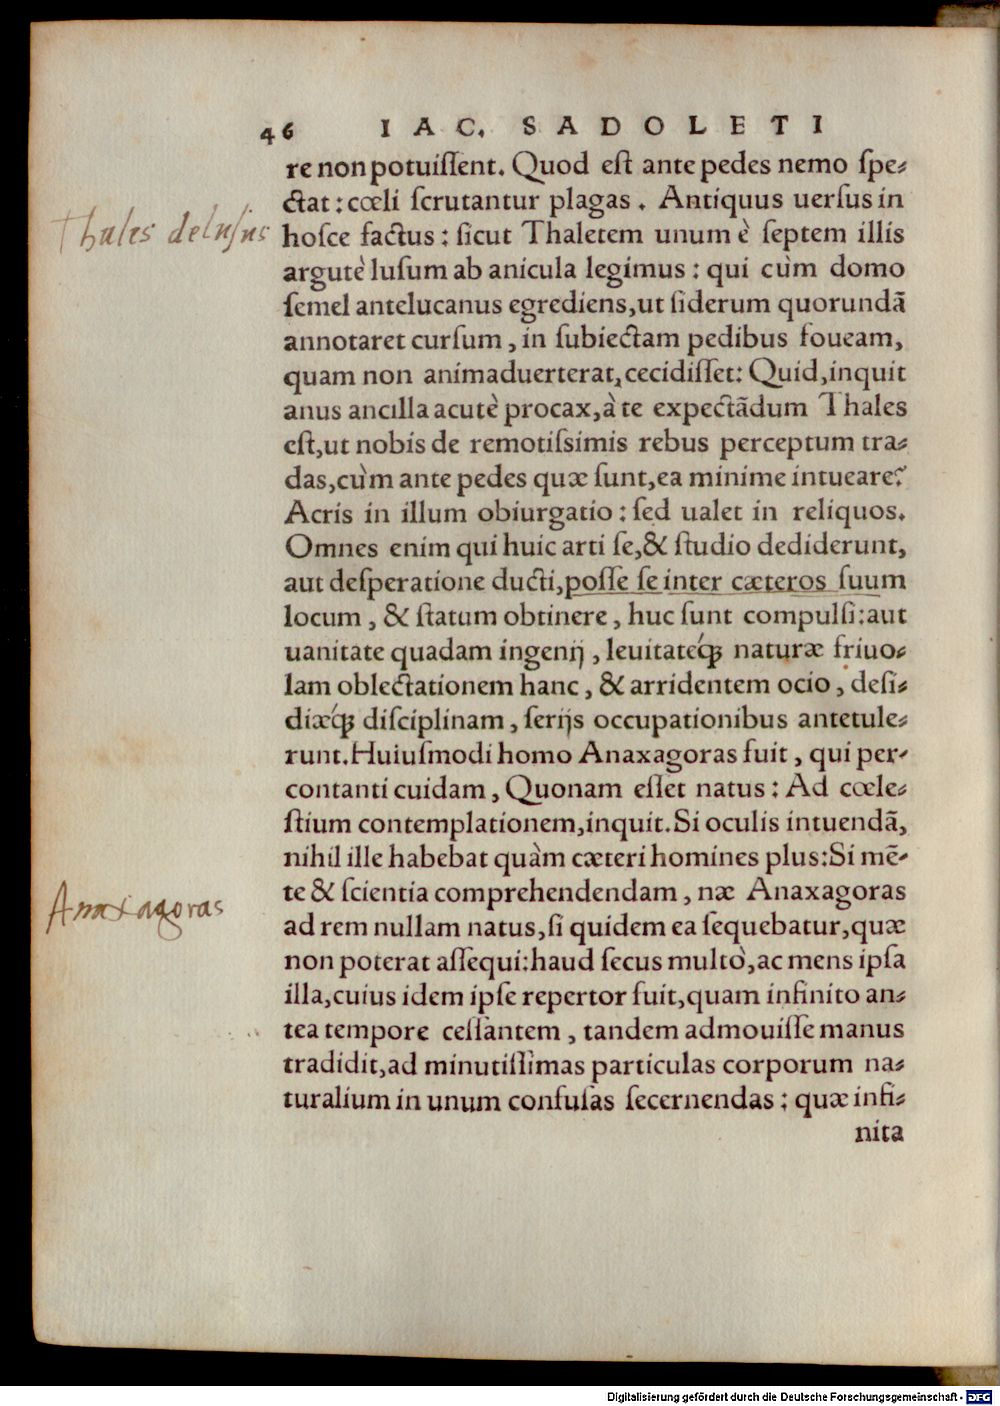 46 IAC. SADOLETI
re non potuiſſent. Quod eſt ante pedes nemo ſpe-
ctat: cœli ſcrutantur plagas. Antiquus uerſus in
Thales delusus
hoſce factus: ſicut Thaletem unum è ſeptem illis
argutè luſum ab anicula legimus: qui cùm domo
ſemel antelucanus egrediens, ut ſiderum quorundã
annotaret curſum, in ſubiectam pedibus foueam,
quam non animaduerterat, cecidiſſet: Quid, inquit
anus ancilla acutè procax, à te expectãdum Thales
eſt, ut nobis de remotiſsimis rebus perceptum tra-
das, cùm ante pedes quæ ſunt, ea minime intueare?
Acris in illum obiurgatio: ſed ualet in reliquos.
Omnes enim qui huic arti ſe, & ſtudio dediderunt,
aut deſperatione ducti, poſſe ſe inter cæteros ſuum
locum, & ſtatum obtinere, huc ſunt compulſi: aut
uanitate quadam ingenij, leuitateq́ꝫ naturæ friuo-
lam oblectationem hanc, & arridentem ocio, deſi-
diæq́ꝫ diſciplinam, ſerijs occupationibus antetule-
runt. Huiuſmodi homo Anaxagoras fuit, qui per-
contanti cuidam, Quonam eſſet natus: Ad cœle-
ſtium contemplationem, inquit. Si oculis intuendã,
nihil ille habebat quàm cæteri homines plus: Si mẽ-
te & ſcientia comprehendendam, næ Anaxagoras
Anaxagoras
ad rem nullam natus, ſi quidem ea ſequebatur, quæ
non poterat aſſequi: haud ſecus multò, ac mens ipſa
illa, cuius idem ipſe repertor fuit, quam infinito an-
tea tempore ceſſantem, tandem admouiſſe manus
tradidit, ad minutiſſimas particulas corporum na-
turalium in unum confuſas ſecernendas: quæ infi-
nita
Digitalisierung gefördert durch die Deutsche Forschungsgemeinschaft - DFG